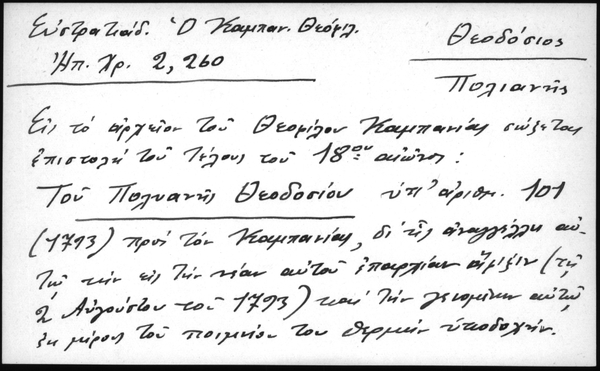 Εὐστρατιάδ. Ὁ Καμπαν. Θεόφιλ.
Ἠπ. Χρ. 2, 260
Θεοδόσιος
Πολιανῆς
Εἰς τὸ ἀρχεῖον τοῦ Θεοφίλου Καμπανίας σώζεται
ἐπιστολὴ τοῦ τέλους τοῦ 18ου αἰῶνος:
Τοῦ Πολυανῆς Θεοδοσίου ὑπ' ἀριθμ. 101
(1793) πρὸς τὸν Καμπανίας, δι' ἧς ἀναγγέλλει αὐ-
τῷ τὴν εἰς τὴν νέαν αὐτοῦ ἐπαρχίαν ἄφιξιν (τῇ
2 Αὐγούστου τοῦ 1793) καὶ τὴν γενομένην αὐτῷ
ἐκ μέρους τοῦ ποιμνίου του θερμὴν ὑποδοχήν.